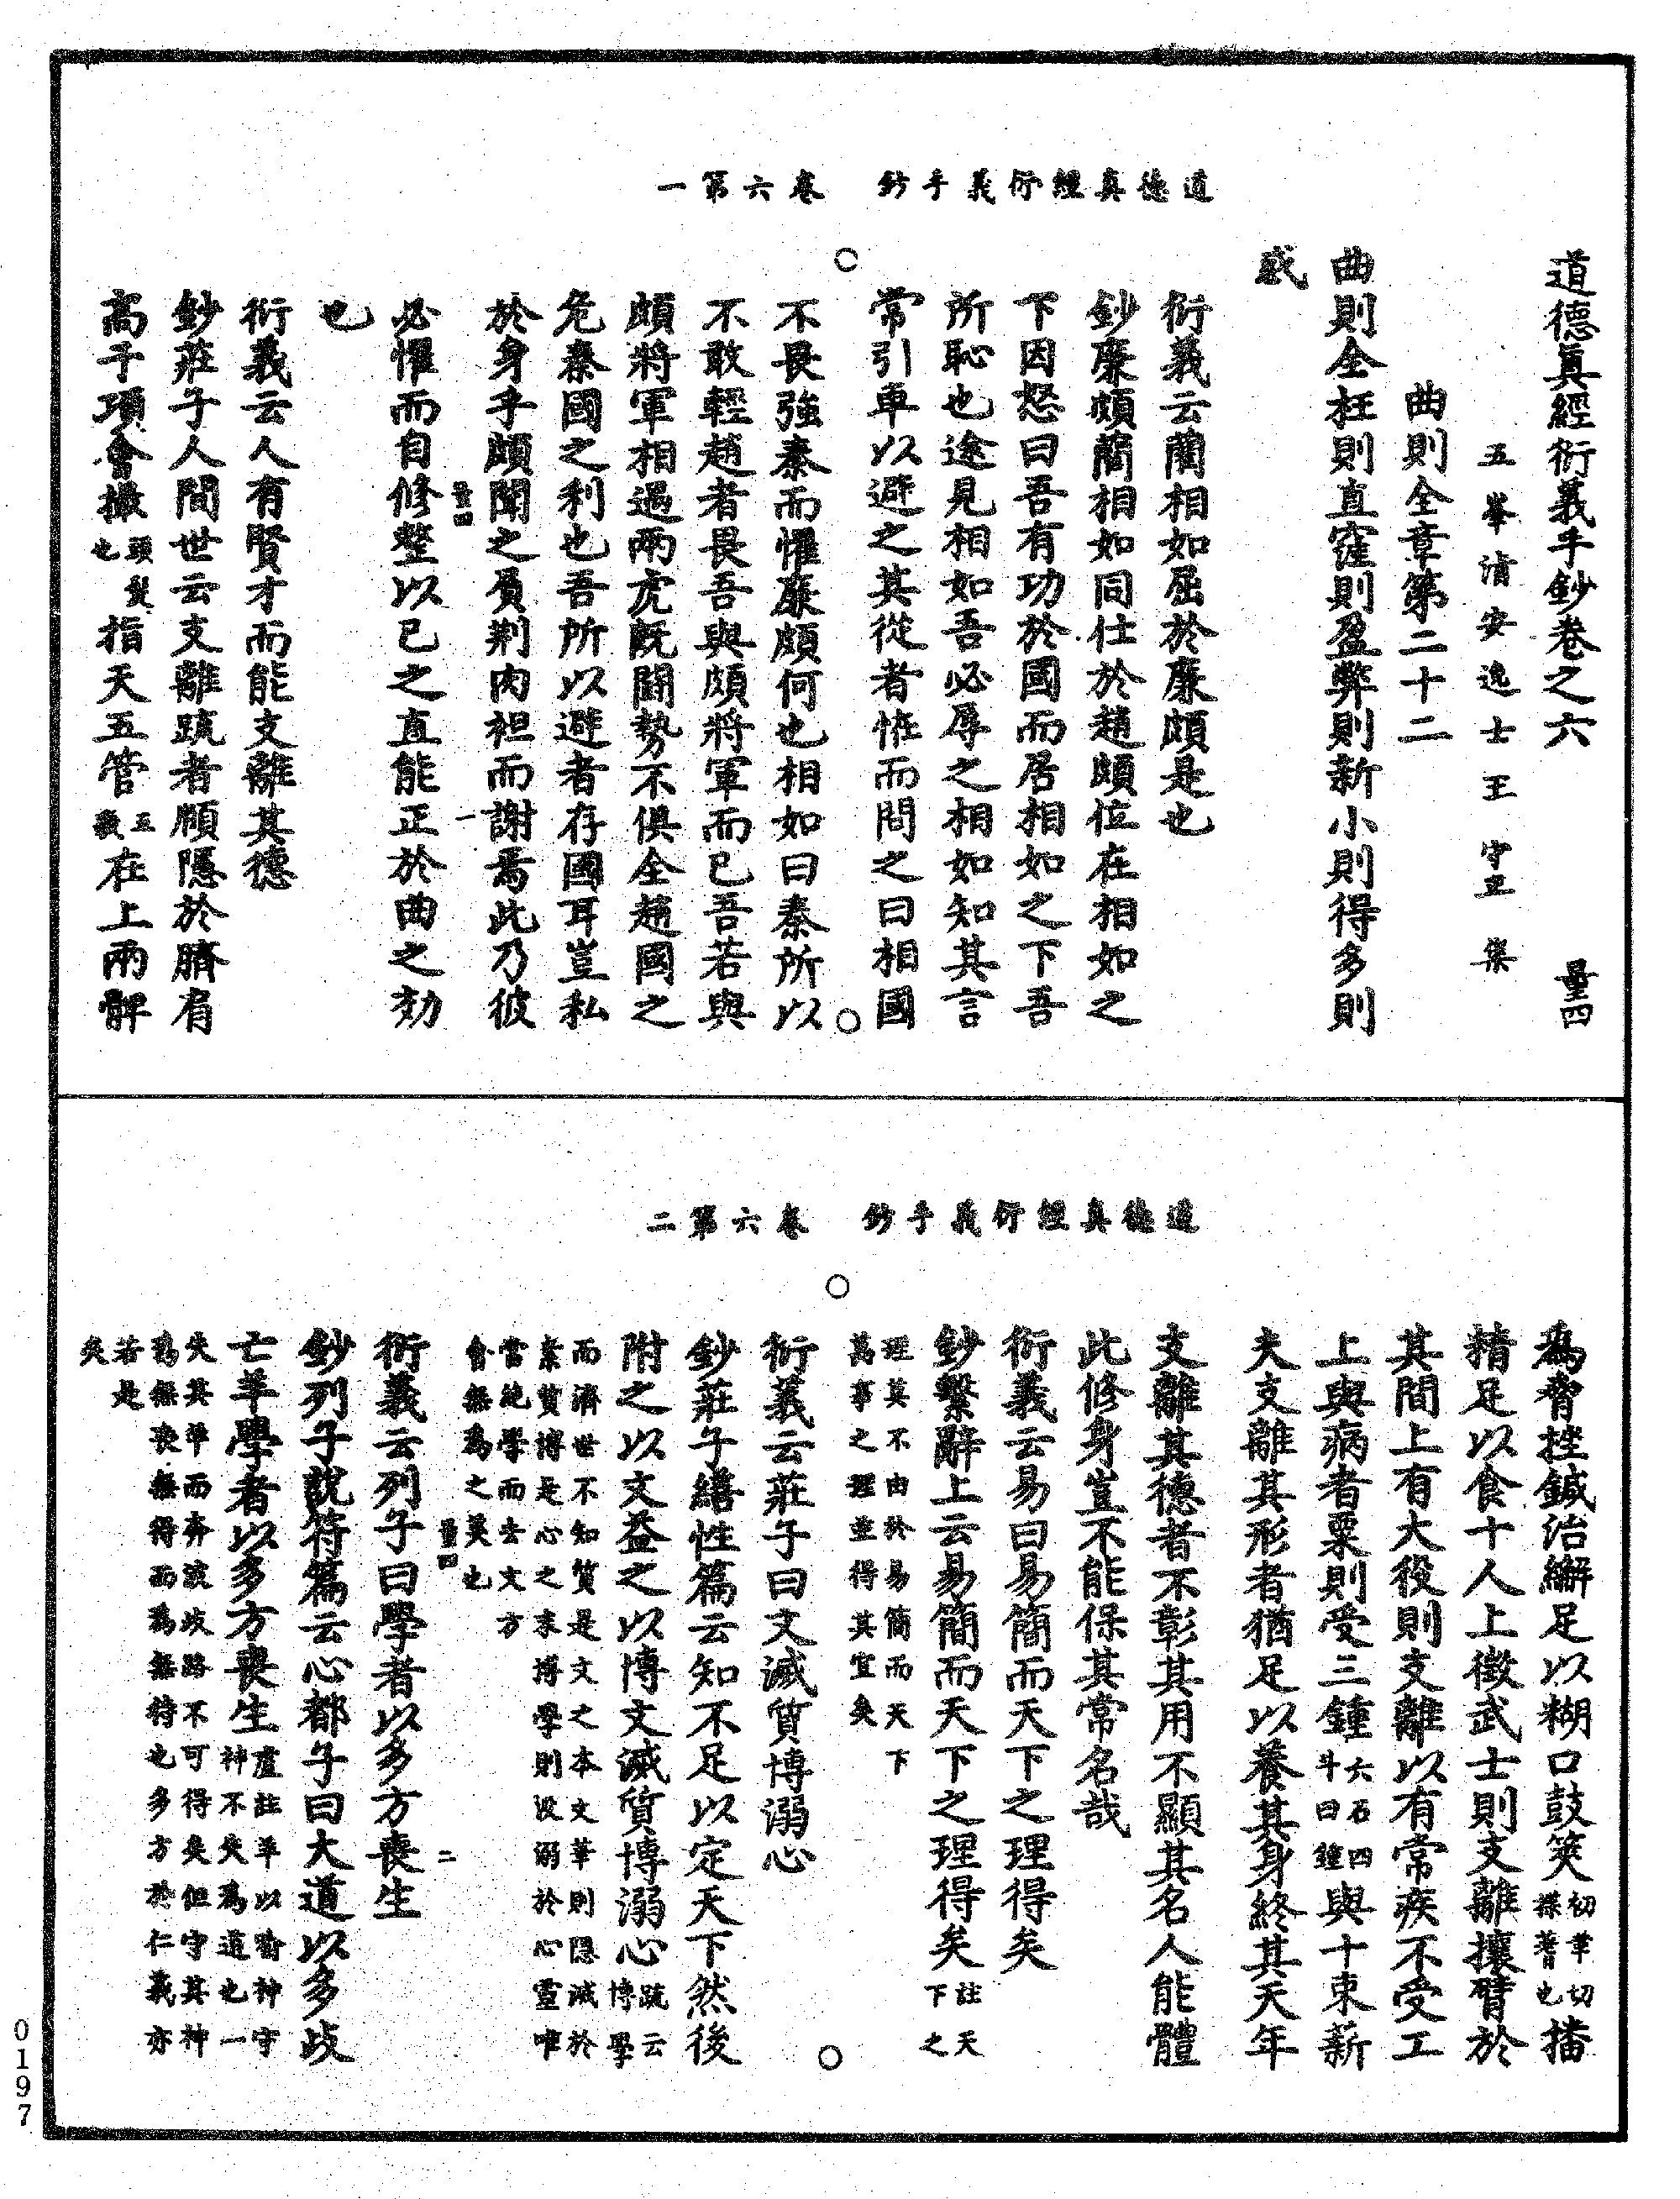 道德真經衍義手鈔　卷六第一
道德真經衍義手鈔卷之六　量四
五峯清安逸士王守正集
曲則全章第二十二
曲則全枉則直窪則盈弊則新小則得多則
惑
衍義云藺相如屈於廉頗是也
鈔廉頗藺相如同仕於趙頗位在相如之
下因怒曰吾有功於國而居相如之下吾
所恥也途見相如吾必辱之相如知其言
常引車以避之其從者恠而問之曰相國
不畏強秦而懼廉頗何也相如曰秦所以
不敢輕趙者畏吾與頗將軍而已吾若與
頗將軍相遇兩虎既鬬勢不俱全趙國之
危秦國之利也吾所以避者存國耳豈私
於身乎頗聞之肩荆肉袒而謝焉此乃彼
量四　一
必懼而自修整以已之直能正於曲之効
也
衍義云人有賢才而能支離其德
鈔莊子人間世云支離疏者頤隱於臍肩
高于項會撮頭髮也指天五管五藏在上兩髀
道德真經衍義手鈔　卷六第二
為脅挫鍼治繲足以糊口鼓筴初革切揲蓍也播
精足以食十人上徵武士則支離攘臂於
其間上有大役則支離以有常疾不受工
上與病者粟則受三鍾六石四斗曰鍾與十束薪
夫支離其形者猶足以養其身終其天年
支離其德者不彰其用不顯其名人能體
此修身豈不能保其常名哉
衍義云易曰易簡而天下之理得矣
鈔繫辭上云易簡而天下之理得矣註天下之
理莫不由於易簡而天下
萬事之理並得其宜矣
衍義云莊子曰文滅質博溺心
鈔莊子繕性篇云知不足以定天下然後
附之以文益之以博文滅質博溺心疏云博學
而濟世不知質是文之本文華則隱滅於
素質博是心之末博學則沒溺於心靈唯
當絕學而去文方
會無為之美也
量四　二
衍義云列子曰學者以多方喪生
鈔列子說符篇云心都子曰大道以多歧
亡羊學者以多方喪生盧註羊以喻神守神不失為道也一
失其準而奔波歧路不可得矣但守其神
為無喪無得而為無待也多方於仁義亦
若是
矣
0197